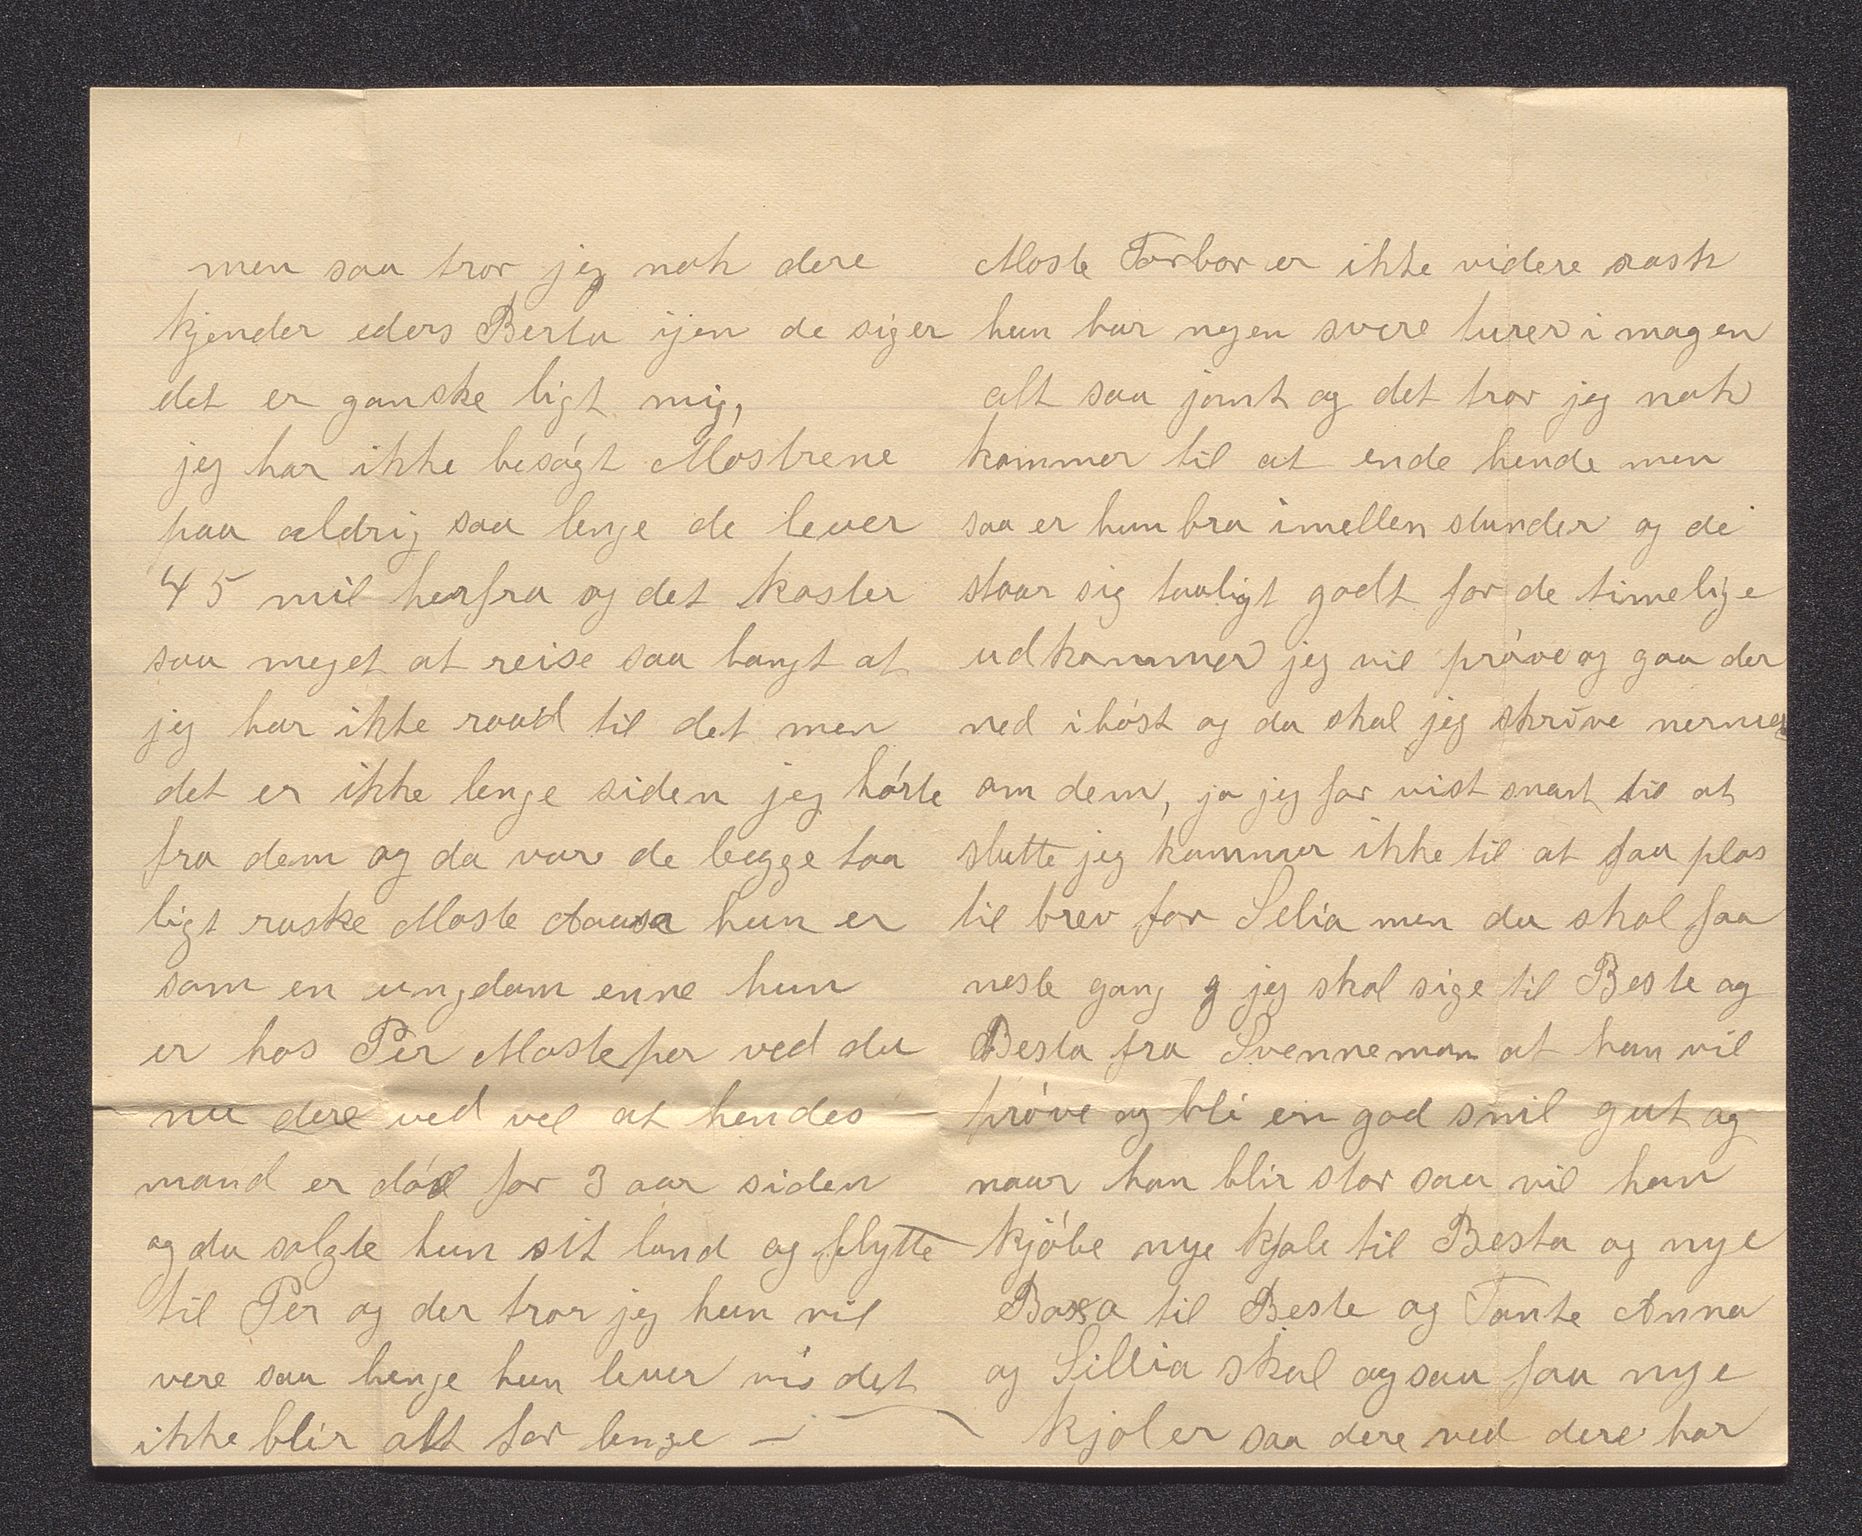 men saa tror jeg nok dere
kjender eders Berta ijen de siger
det er ganske ligt mig,
jeg har ikke besógt Mostrene
paa aldrig saa lenge de lever
45 mil herfra og det koster
saa meget at reise saa langt at
jeg har ikke raad til det men
det er ikke lenge siden jeg hórte
fra dem og da vare de begge taa
ligt raske Moste Aasa hun er
som en ungdom enne hun
er hos Per Mosteper ved du
nu dere ved vel at hendes
mand er dód for 3 aar siden
og da solgte hun sit land og flytte
til Per og der tror jeg hun vil
vere saa lenge hun lever vis det
ikke blir alt for lenge —
Moste Torbor er ikke videre rask
hun har nogen svere turer i magen
alt saa jomt og det tror jeg nok
kommer til at ende hende men
saa er hun bra imellen stunder og de
staar sig taaligt godt for de timelige
udkommer jeg vil próve og gaa der
ned i hóst og da skal jeg skrive nermer
om dem, ja jeg far vist snart til at
slutte jeg kommer ikke til at faa plas
til brev for Selia men du skal faa
neste gang jeg skal sige til Beste og
Besta fra Svenneman at han vil
próve og bli en god snil gut og
naar han blir stor saa vil han
kjóbe nye kjole til Besta og nye
Boxa til Beste og Tante Anna
og Sillia skal ogsaa faa nye
kjoler saa dere ved dere har